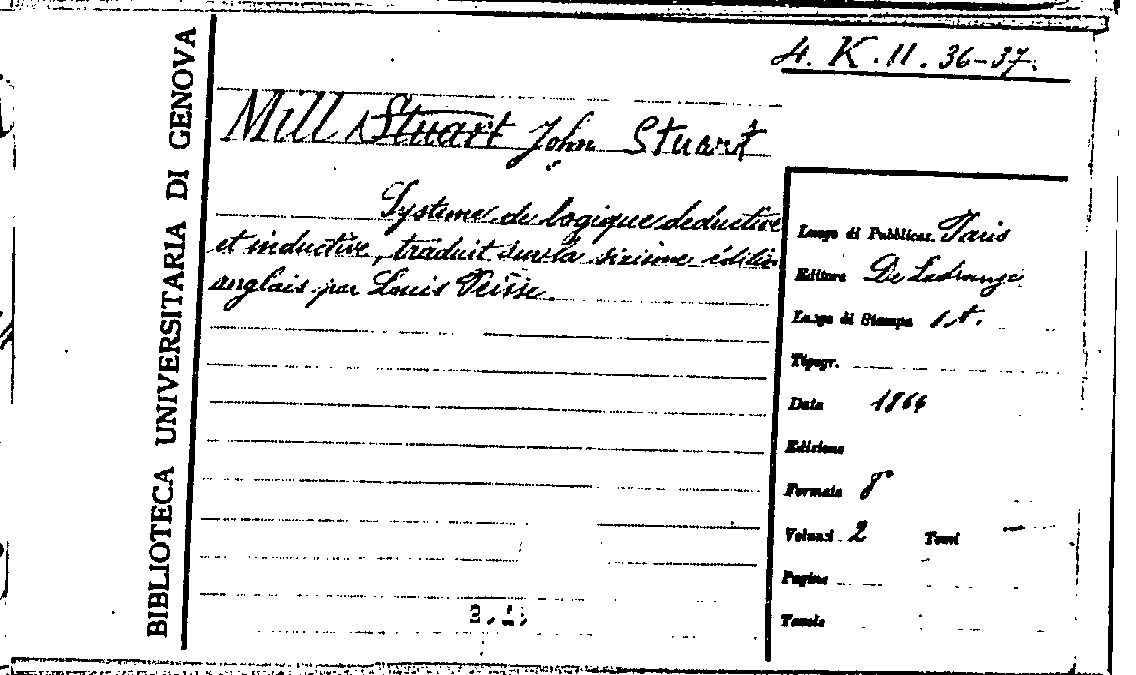 4. K. 11. 36-37.
BIBLIOTECA UNIVERSITARIA DI GENOVA
Mill Stuart John Stuart
Systeme de logique deductive
et inductive, traduit sur la sixieme éditio
anglais par Louis Peisse.
Luogo di Pubblicaz. Paris
Editore De Ladrange
Luogo di Stampa
Tipogr.
Data 1866
Edizione
Formato 8°
Volumi 2 Tomi —
Pagine
Tavole